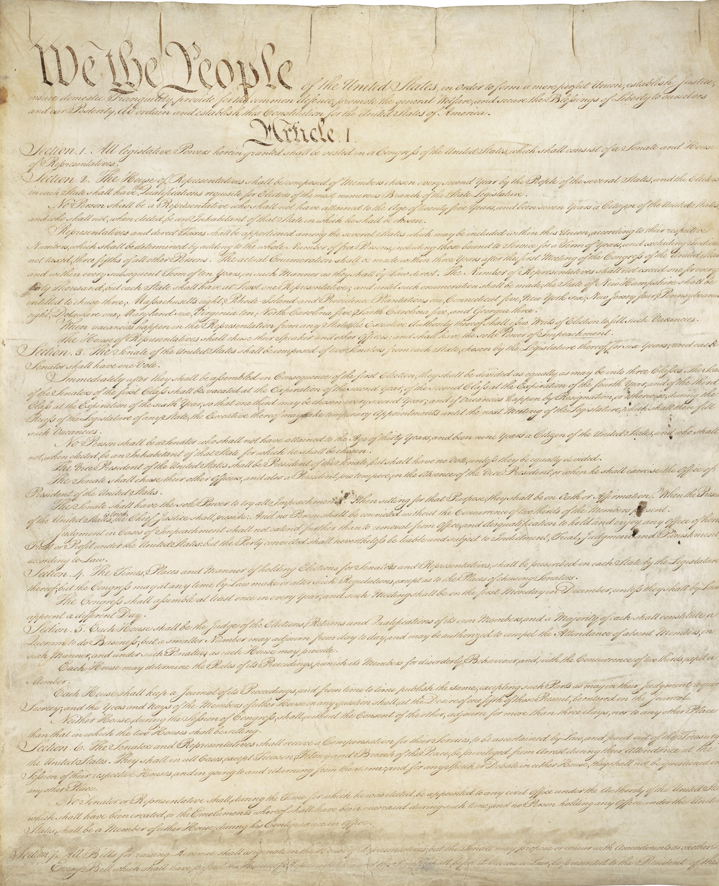 We the People of the United States, in Order to form a more perfect Union, establish Justice,
insure domestic Tranquility, provide for the common defence, promote the general Welfare, and secure the Blessings of Liberty to ourselves
and our Posterity, do ordain and establish this Constitution for the United States of America.
Article. I.
Section. 1. All legislative Powers herein granted shall be vested in a Congress of the United States, which shall consist of a Senate and House
of Representatives.
Section. 2. The House of Representatives shall be composed of Members chosen every second Year by the People of the several States, and the Electors
in each State shall have the Qualifications requisite for Electors of the most numerous Branch of the State Legislature.
No Person shall be a Representative who shall not have attained to the Age of twenty five Years, and been seven Years a Citizen of the United States,
and who shall not, when elected, be an Inhabitant of that State in which he shall be chosen.
Representatives and direct Taxes shall be apportioned among the several States which may be included within this Union, according to their respective
Numbers, which shall be determined by adding to the whole Number of free Persons, including those bound to Service for a Term of Years, and excluding Indians
not taxed, three fifths of all other Persons. The actual Enumeration shall be made within three Years after the first Meeting of the Congress of the United States,
and within every subsequent Term of ten Years, in such Manner as they shall by Law direct. The Number of Representatives shall not exceed one for every
thirty Thousand, but each State shall have at Least one Representative; and until such enumeration shall be made, the State of New Hampshire shall be
entitled to chuse three, Massachusetts eight, Rhode Island and Providence Plantations one, Connecticut five, New York six, New Jersey four, Pennsylvania
eight, Delaware one, Maryland six, Virginia ten, North Carolina five, South Carolina five, and Georgia three.
When vacancies happen in the Representation from any State, the Executive Authority thereof shall issue Writs of Election to fill such Vacancies.
The House of Representatives shall chuse their Speaker and other Officers; and shall have the sole Power of Impeachment.
Section. 3. The Senate of the United States shall be composed of two Senators from each State, chosen by the Legislature thereof, for six Years; and each
Senator shall have one Vote.
Immediately after they shall be assembled in Consequence of the first Election, they shall be divided as equally as may be into three Classes. The Seats
of the Senators of the first Class shall be vacated at the Expiration of the second Year, of the second Class at the Expiration of the fourth Year, and of the third
Class at the Expiration of the sixth Year, so that one third may be chosen every second Year; and if Vacancies happen by Resignation, or otherwise, during the
Recess of the Legislature of any State, the Executive thereof may make temporary Appointments until the next Meeting of the Legislature, which shall then fill
such Vacancies.
No Person shall be a Senator who shall not have attained to the Age of thirty Years, and been nine Years a Citizen of the United States, and who shall
not, when elected, be an Inhabitant of that State for which he shall be chosen.
The Vice President of the United States shall be President of the Senate, but shall have no Vote, unless they be equally divided.
The Senate shall chuse their other Officers, and also a President pro tempore, in the Absence of the Vice President, or when he shall exercise the Office of
President of the United States.
The Senate shall have the sole Power to try all Impeachments. When sitting for that Purpose, they shall be on Oath or Affirmation. When the President
of the United States is tried, the Chief Justice shall preside: And no Person shall be convicted without the Concurrence of two thirds of the Members present.
Judgment in Cases of Impeachment shall not extend further than to removal from Office, and disqualification to hold and enjoy any Office of honor,
Trust or Profit under the United States: but the Party convicted shall nevertheless be liable and subject to Indictment, Trial, Judgment and Punishment,
according to Law.
Section. 4. The Times, Places and Manner of holding Elections for Senators and Representatives, shall be prescribed in each State by the Legislature
thereof; but the Congress may at any time by Law make or alter such Regulations, except as to the Places of chusing Senators.
The Congress shall assemble at least once in every Year, and such Meeting shall be on the first Monday in December, unless they shall by Law
appoint a different Day.
Section. 5. Each House shall be the Judge of the Elections, Returns and Qualifications of its own Members, and a Majority of each shall constitute a
Quorum to do Business; but a smaller Number may adjourn from day to day, and may be authorized to compel the Attendance of absent Members, in
such Manner, and under such Penalties as each House may provide.
Each House may determine the Rules of its Proceedings, punish its Members for disorderly Behaviour, and, with the Concurrence of two thirds, expel a
Member.
Each House shall keep a Journal of its Proceedings, and from time to time publish the same, excepting such Parts as may in their Judgment require
Secrecy; and the Yeas and Nays of the Members of either House on any question shall, at the Desire of one fifth of those Present, be entered on the Journal.
Neither House, during the Session of Congress, shall, without the Consent of the other, adjourn for more than three days, nor to any other Place
than that in which the two Houses shall be sitting.
Section. 6. The Senators and Representatives shall receive a Compensation for their Services, to be ascertained by Law, and paid out of the Treasury of
the United States. They shall in all Cases, except Treason, Felony and Breach of the Peace, be privileged from Arrest during their Attendance at the
Session of their respective Houses, and in going to and returning from the same; and for any Speech or Debate in either House, they shall not be questioned in
any other Place.
No Senator or Representative shall, during the Time for which he was elected, be appointed to any civil Office under the Authority of the United States,
which shall have been created, or the Emoluments whereof shall have been encreased during such time; and no Person holding any Office under the United
States, shall be a Member of either House during his Continuance in Office.
Section. 7. All Bills for raising Revenue shall originate in the House of Representatives; but the Senate may propose or concur with Amendments as on other
Every Bill which shall have passed the House of Representatives and the Senate, shall, before it become a Law, be presented to the President of the